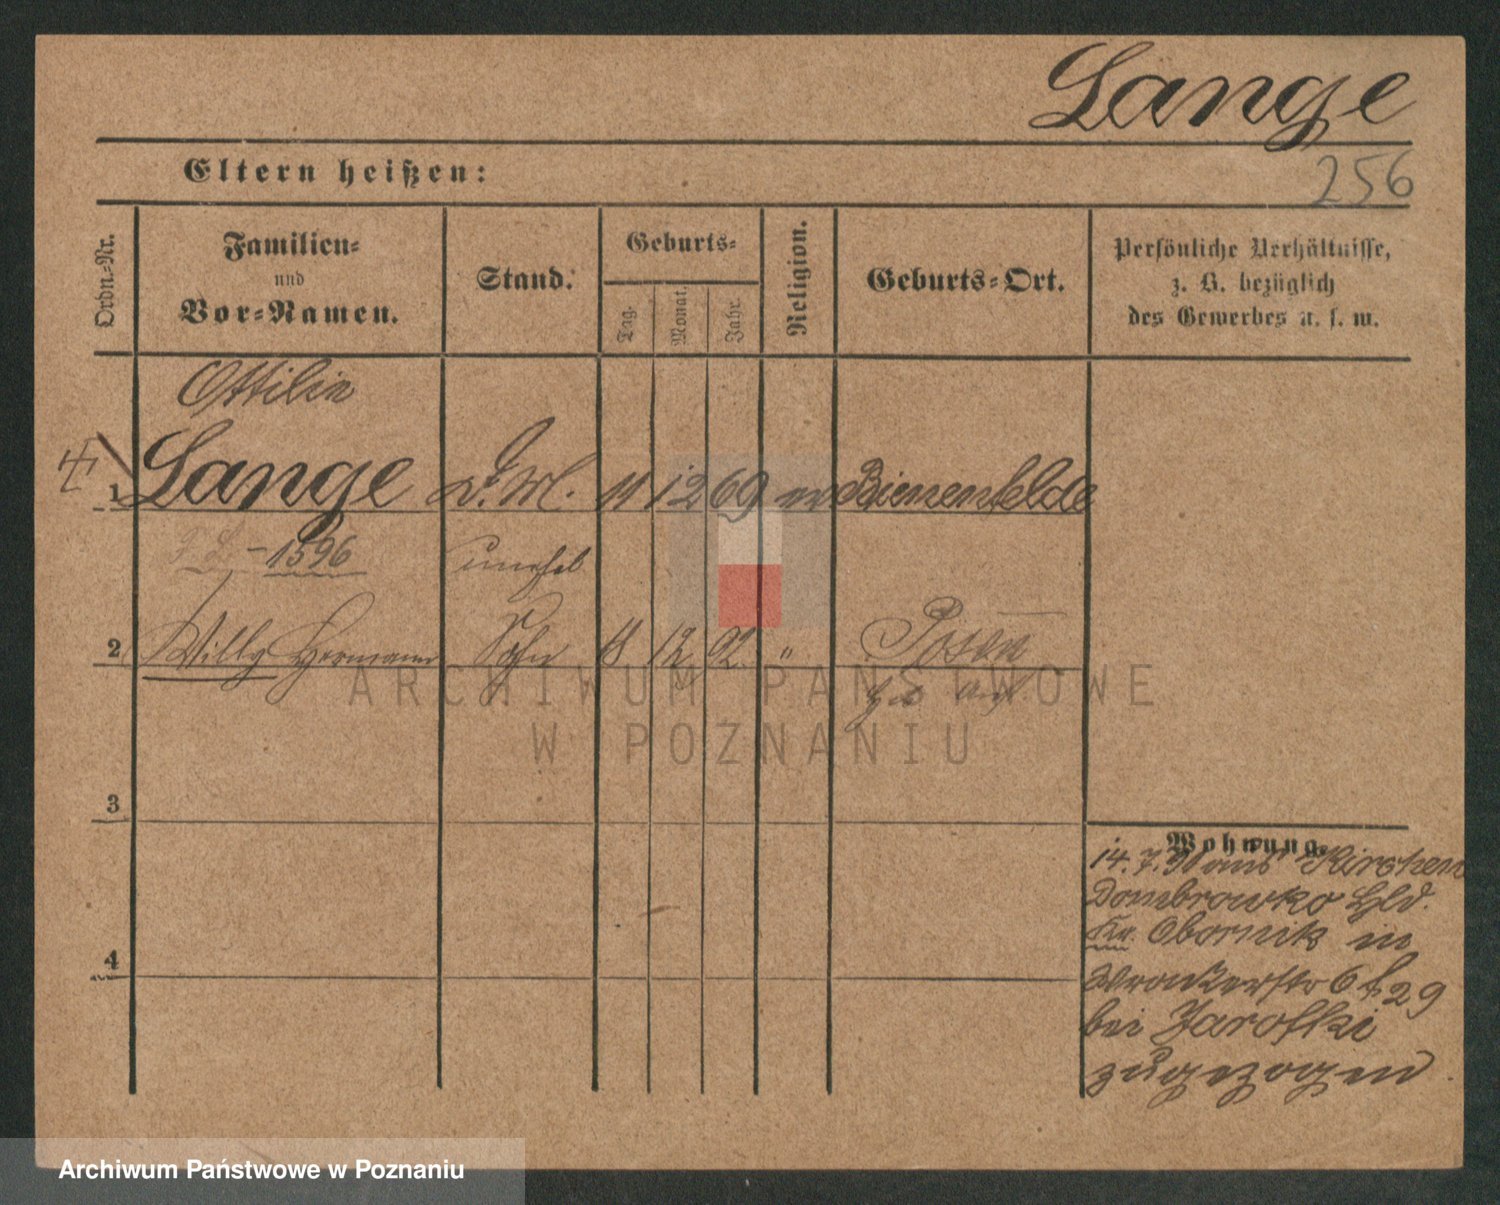 Lange
256
Eltern heißen:
Ordn.-Nr.
Familien-
und
Vor-Namen.
Stand.
Geburts-
Tag.
Monat.
Jahr.
Religion.
Geburts-Ort.
Persönliche Verhältnisse,
z. B. bezüglich
des Gewerbes u. s. w.
Ottilie
1 Lange d. M. 11 12 69 ev Bienenfelde
1596
unehel
2 Willy Hermann Sohn 18 12 92 " Posen
3
4
Wohnung.
14. 7. 90 aus Kirchen
Dombrowko Hld.
Kr. Obornik in
Wronkerstr 6 f 29
bei Jarofki
zugezogen
ARCHIWUM PAŃSTWOWE
W POZNANIU
Archiwum Państwowe w Poznaniu